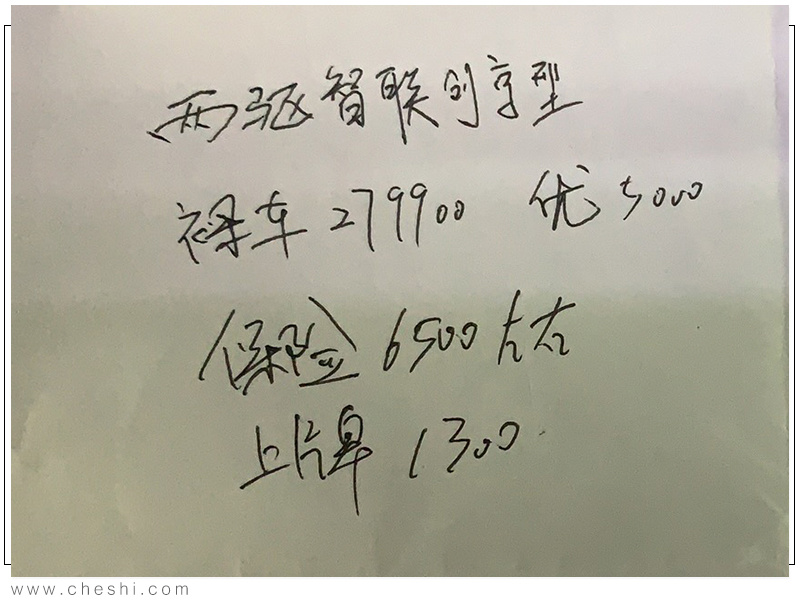 两驱智联创享型
裸车 279900 优 5000
保险 6500 左右
上牌 1300
www.cheshi.com